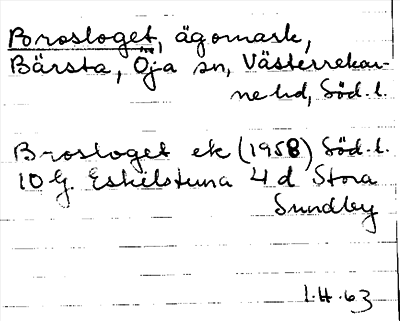 Brosloget, ägomark,
Bärsta, Öja sn, Västerrekar-
ne hd, Söd. l.
Brosloget ek (1958) Söd. l.
10 G. Eskilstuna 4 d Stora
Sundby
I.H. 63